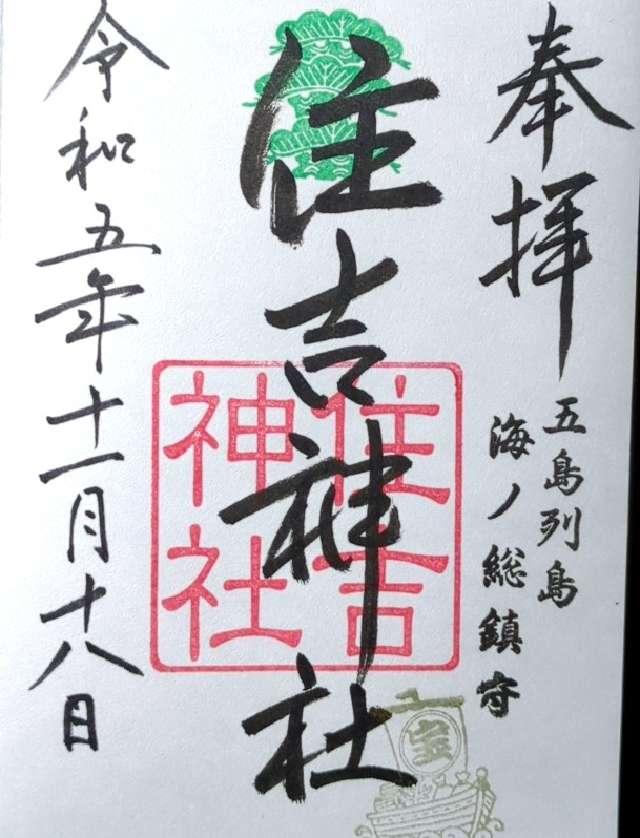 奉拝
五島列島
海ノ総鎮守
住吉神社
住吉
神社
宝
令和五年十一月十八日